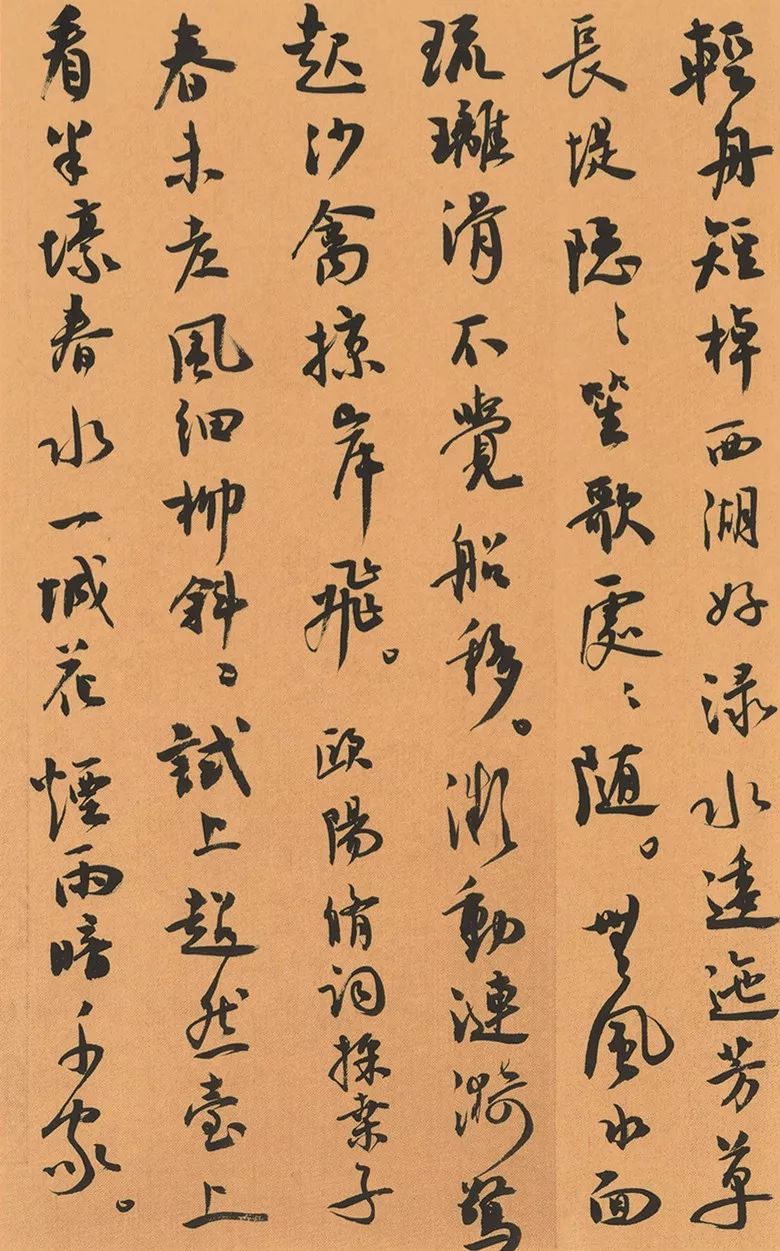 輕舟短棹西湖好渌水逶迤芳草
長堤隱〻笙歌處〻随。無風水面
琉璃滑不覺船移。微動漣漪驚
起沙禽掠岸飛。歐陽脩詞採桑子
春未老風細柳斜〻試上超然臺上
看半壕春水一城花煙雨暗千家。